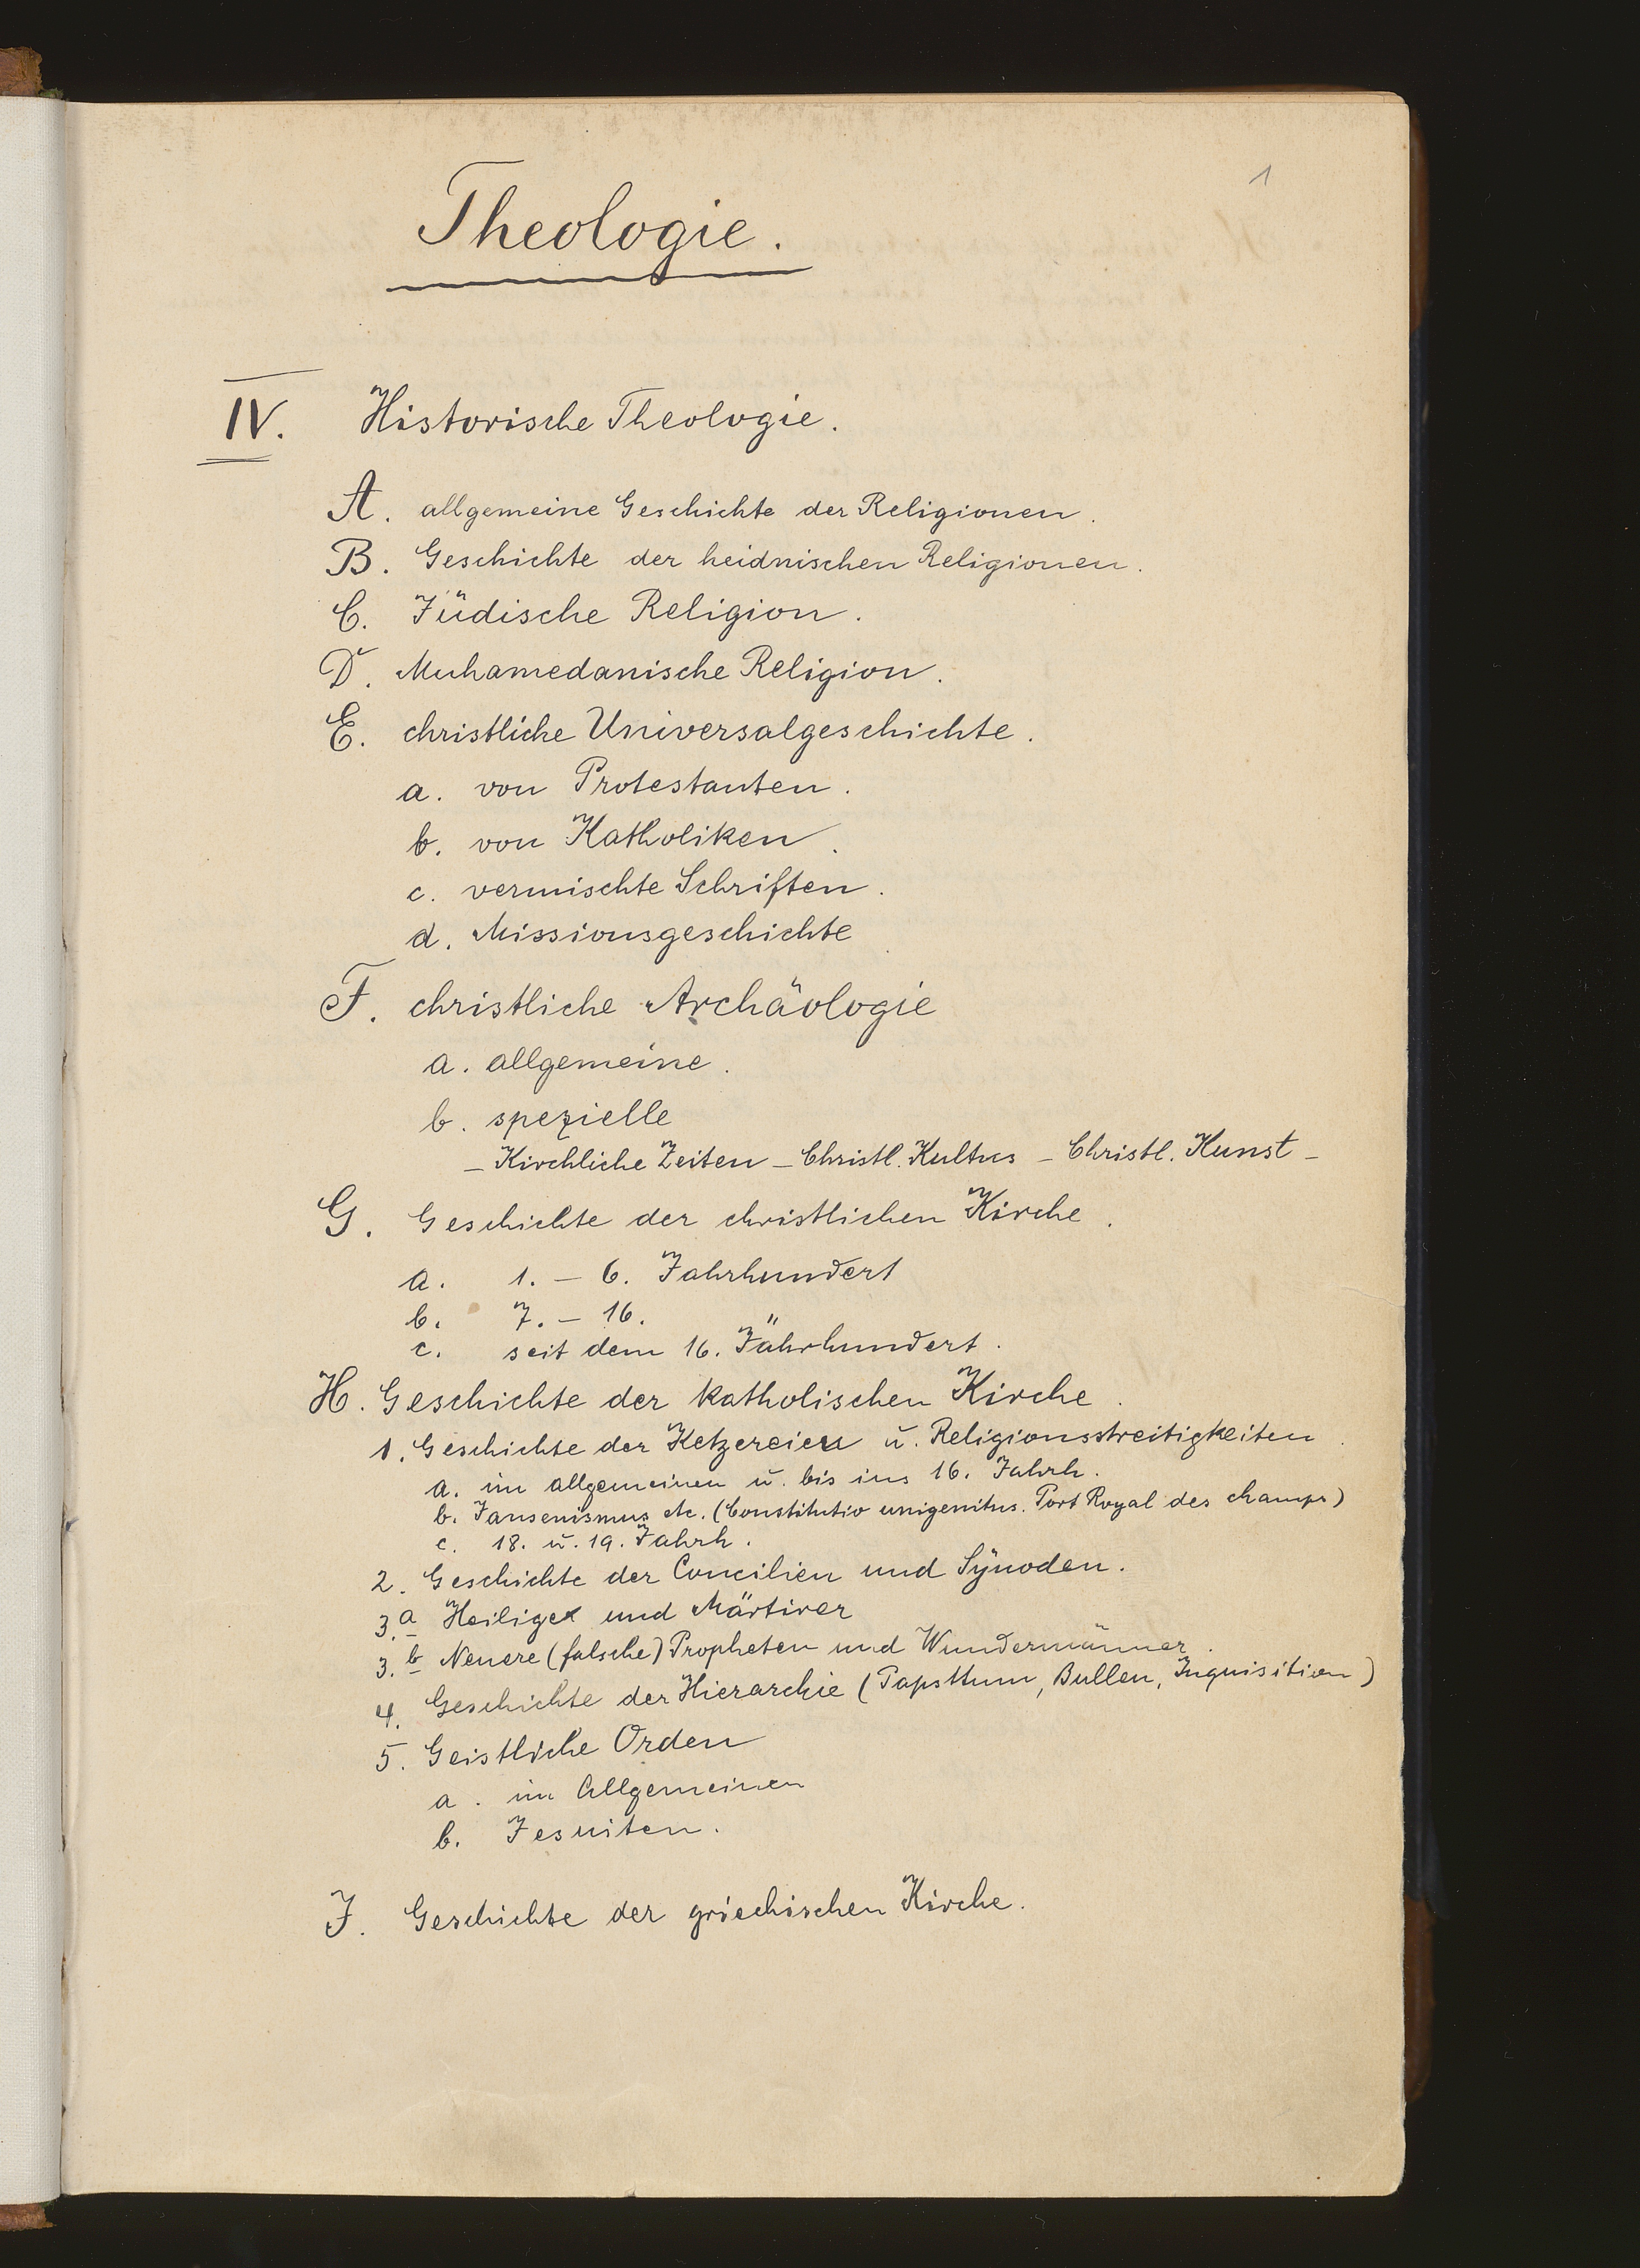 1
Theologie.
IV. Historische Theologie.
A. allgemeine Geschichte der Religionen.
B. Geschichte der heidnischen Religionen.
C. Jüdische Religion.
D. Muhamedanische Religion.
E. christliche Universalgeschichte.
a. von Protestanten.
b. von Katholiken.
c. vermischte Schriften.
d. Missionsgeschichte
F. christliche Archäologie
a. allgemeine.
b. spezielle
– Kirchliche Zeiten – Christl. Kultus – Christl. Kunst –
G. Geschichte der christlichen Kirche.
a. 1. – 6. Jahrhundert
b. 7. – 16. "
c. seit dem 16. Jahrhundert.
H. Geschichte der katholischen Kirche.
1. Geschichte der Ketzereien u. Religionsstreitigkeiten.
a. im allgemeinen u. bis ins 16. Jahrh.
b. Jansenismus etc. (Constitutio unigenitus. Port Royal des champs)
c. 18. u. 19. Jahrh.
2. Geschichte der Concilien und Synoden.
3.a Heilige und Märtirer
3.b Neuere (falsche) Propheten und Wundermänner.
4. Geschichte der Hierarchie (Papstthum, Bullen, Inquisition)
5. Geistliche Orden
a. im Allgemeinen
b. Jesuiten.
J. Geschichte der griechischen Kirche.